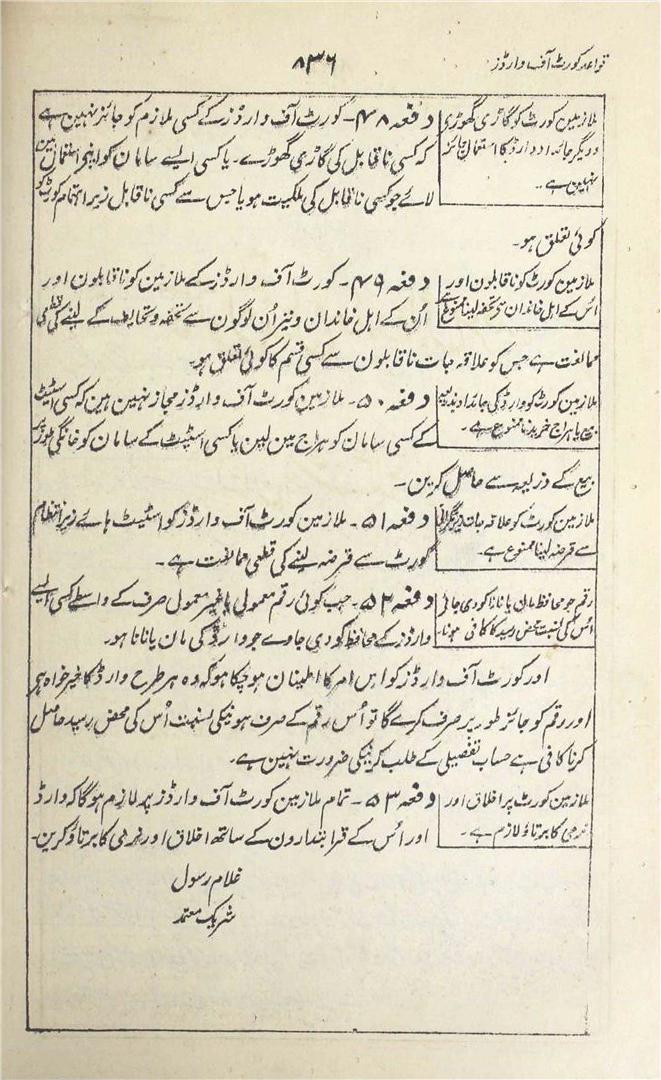 قواعد کورٹ آف وارڈز
۸۳۶
ملازمین کورٹ کو گاڑی گھوڑی
و دیگر جائداد وارڈ کا استعمال جائز
نہین ہے۔
دفعہ ۴۸ - کورٹ آف وارڈز کے کسی ملازم کو جائز نہین ہے
کہ کسی ناقابل کی گاڑی گھوڑے۔ یا کسی ایسے سامان کو اپنے استعمال مین
لائے جو کسی ناقابل کی ملکیت ہو یا جس سے کسی ناقابل زیر اہتمام کورٹ کو
کوئی تعلق ہو۔
ملازمین کورٹ کو ناقابلون اور
اُس کے اہل خاندان سے تحفہ لینا ممنوع ہے
دفعہ ۴۹ - کورٹ آف وارڈز کے ملازمین کو ناقابلون اور
اُن کے اہل خاندان و نیز اُن لوگون سے تحفہ و تحایف کے لینے کی قطعی
ممانعت ہے جس کو علاقہ جات ناقابلون سے کسی قسم کا کوئی تعلق ہو۔
ملازمین کورٹ کو وارڈ کی جائداد بذریعہ
بیع یا ہراج خریدنا ممنوع ہے۔
دفعہ ۵۰ - ملازمین کورٹ آف وارڈز مجاز نہین ہین کہ کسی اسٹیٹ
کے کسی سامان کو ہراج مین لین یا کسی اسٹیٹ کے سامان کو خانگی طور پر
بیع کے ذریعہ سے حاصل کرین۔
ملازمین کورٹ کو علاقہ جات زیر نگرانی
سے قرضہ لینا ممنوع ہے۔
دفعہ ۵۱ - ملازمین کورٹ آف وارڈز کو اسٹیٹ ہائے زیر انتظام
کورٹ سے قرضہ لینے کی قطعی ممانعت ہے۔
رقم جو محافظ مان یا نانا کو دی جائی
اُس کی نسبت محض رسید کا کافی ہونا۔
دفعہ ۵۲ - جب کوئی رقم معمولی یا غیر معمولی صرف کے واسطے کسی ایسے
وارڈز کے محافظ کو دی جاوے جو وارڈ کی مان یا نانا ہو۔
اور کورٹ آف وارڈز کو اس امر کا اطمینان ہوچکا ہو کہ وہ ہر طرح وارڈ کا خیر خواہ ہے
اور رقم کو جائز طور پر صرف کرے گا تو اُس رقم کے صرف ہونیکی بنسبت اُس کی محض رسید حاصل
کرنا کافی ہے حساب تفصیلی کے طلب کرنیکی ضرورت نہین ہے۔
ملازمین کورٹ پر اخلاق اور
نرمی کا برتاؤ لازم ہے۔
دفعہ ۵۳ - تمام ملازمین کورٹ آف وارڈز پر لازم ہوگا کہ وارڈ
اور اُس کے قرابتدارون کے ساتھ اخلاق اور نرمی کا برتاؤ کرین۔
غلام رسول
شریک معتمد